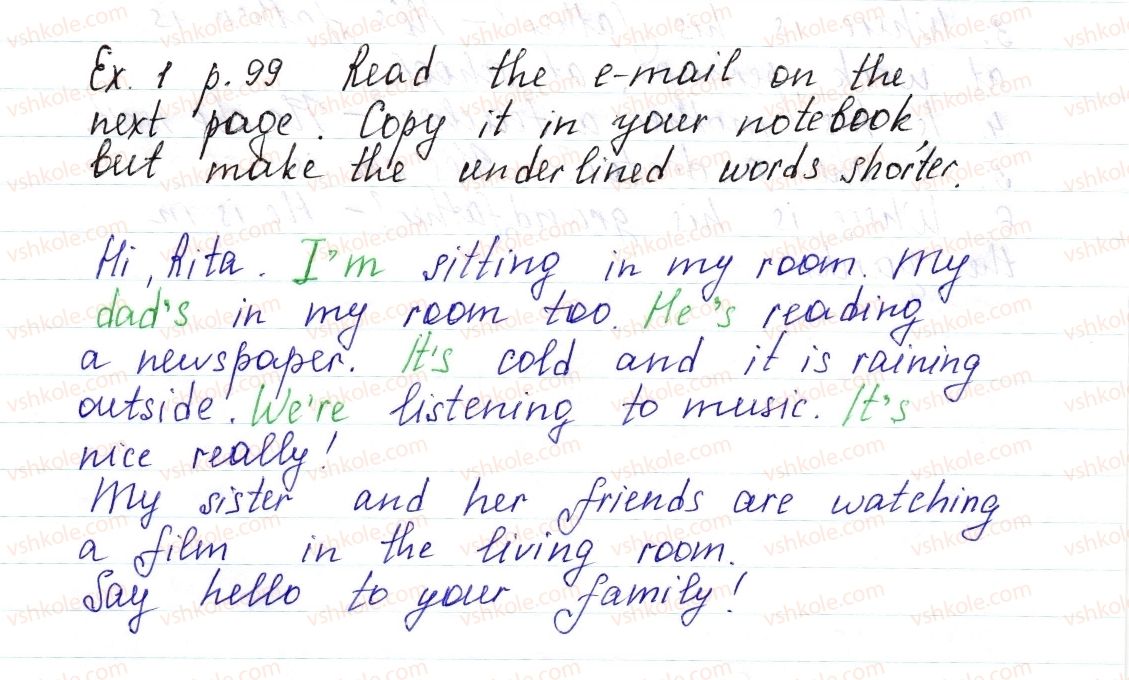 Ex. 1 p. 99 Read the e-mail on the
next page. Copy it in your notebook,
but make the underlined words shorter.
Hi, Rita. I'm sitting in my room. My
dad's in my room too. He's reading
a newspaper. It's cold and it is raining
outside. We're listening to music. It's
nice really!
My sister and her friends are watching
a film in the living room.
Say hello to your family!